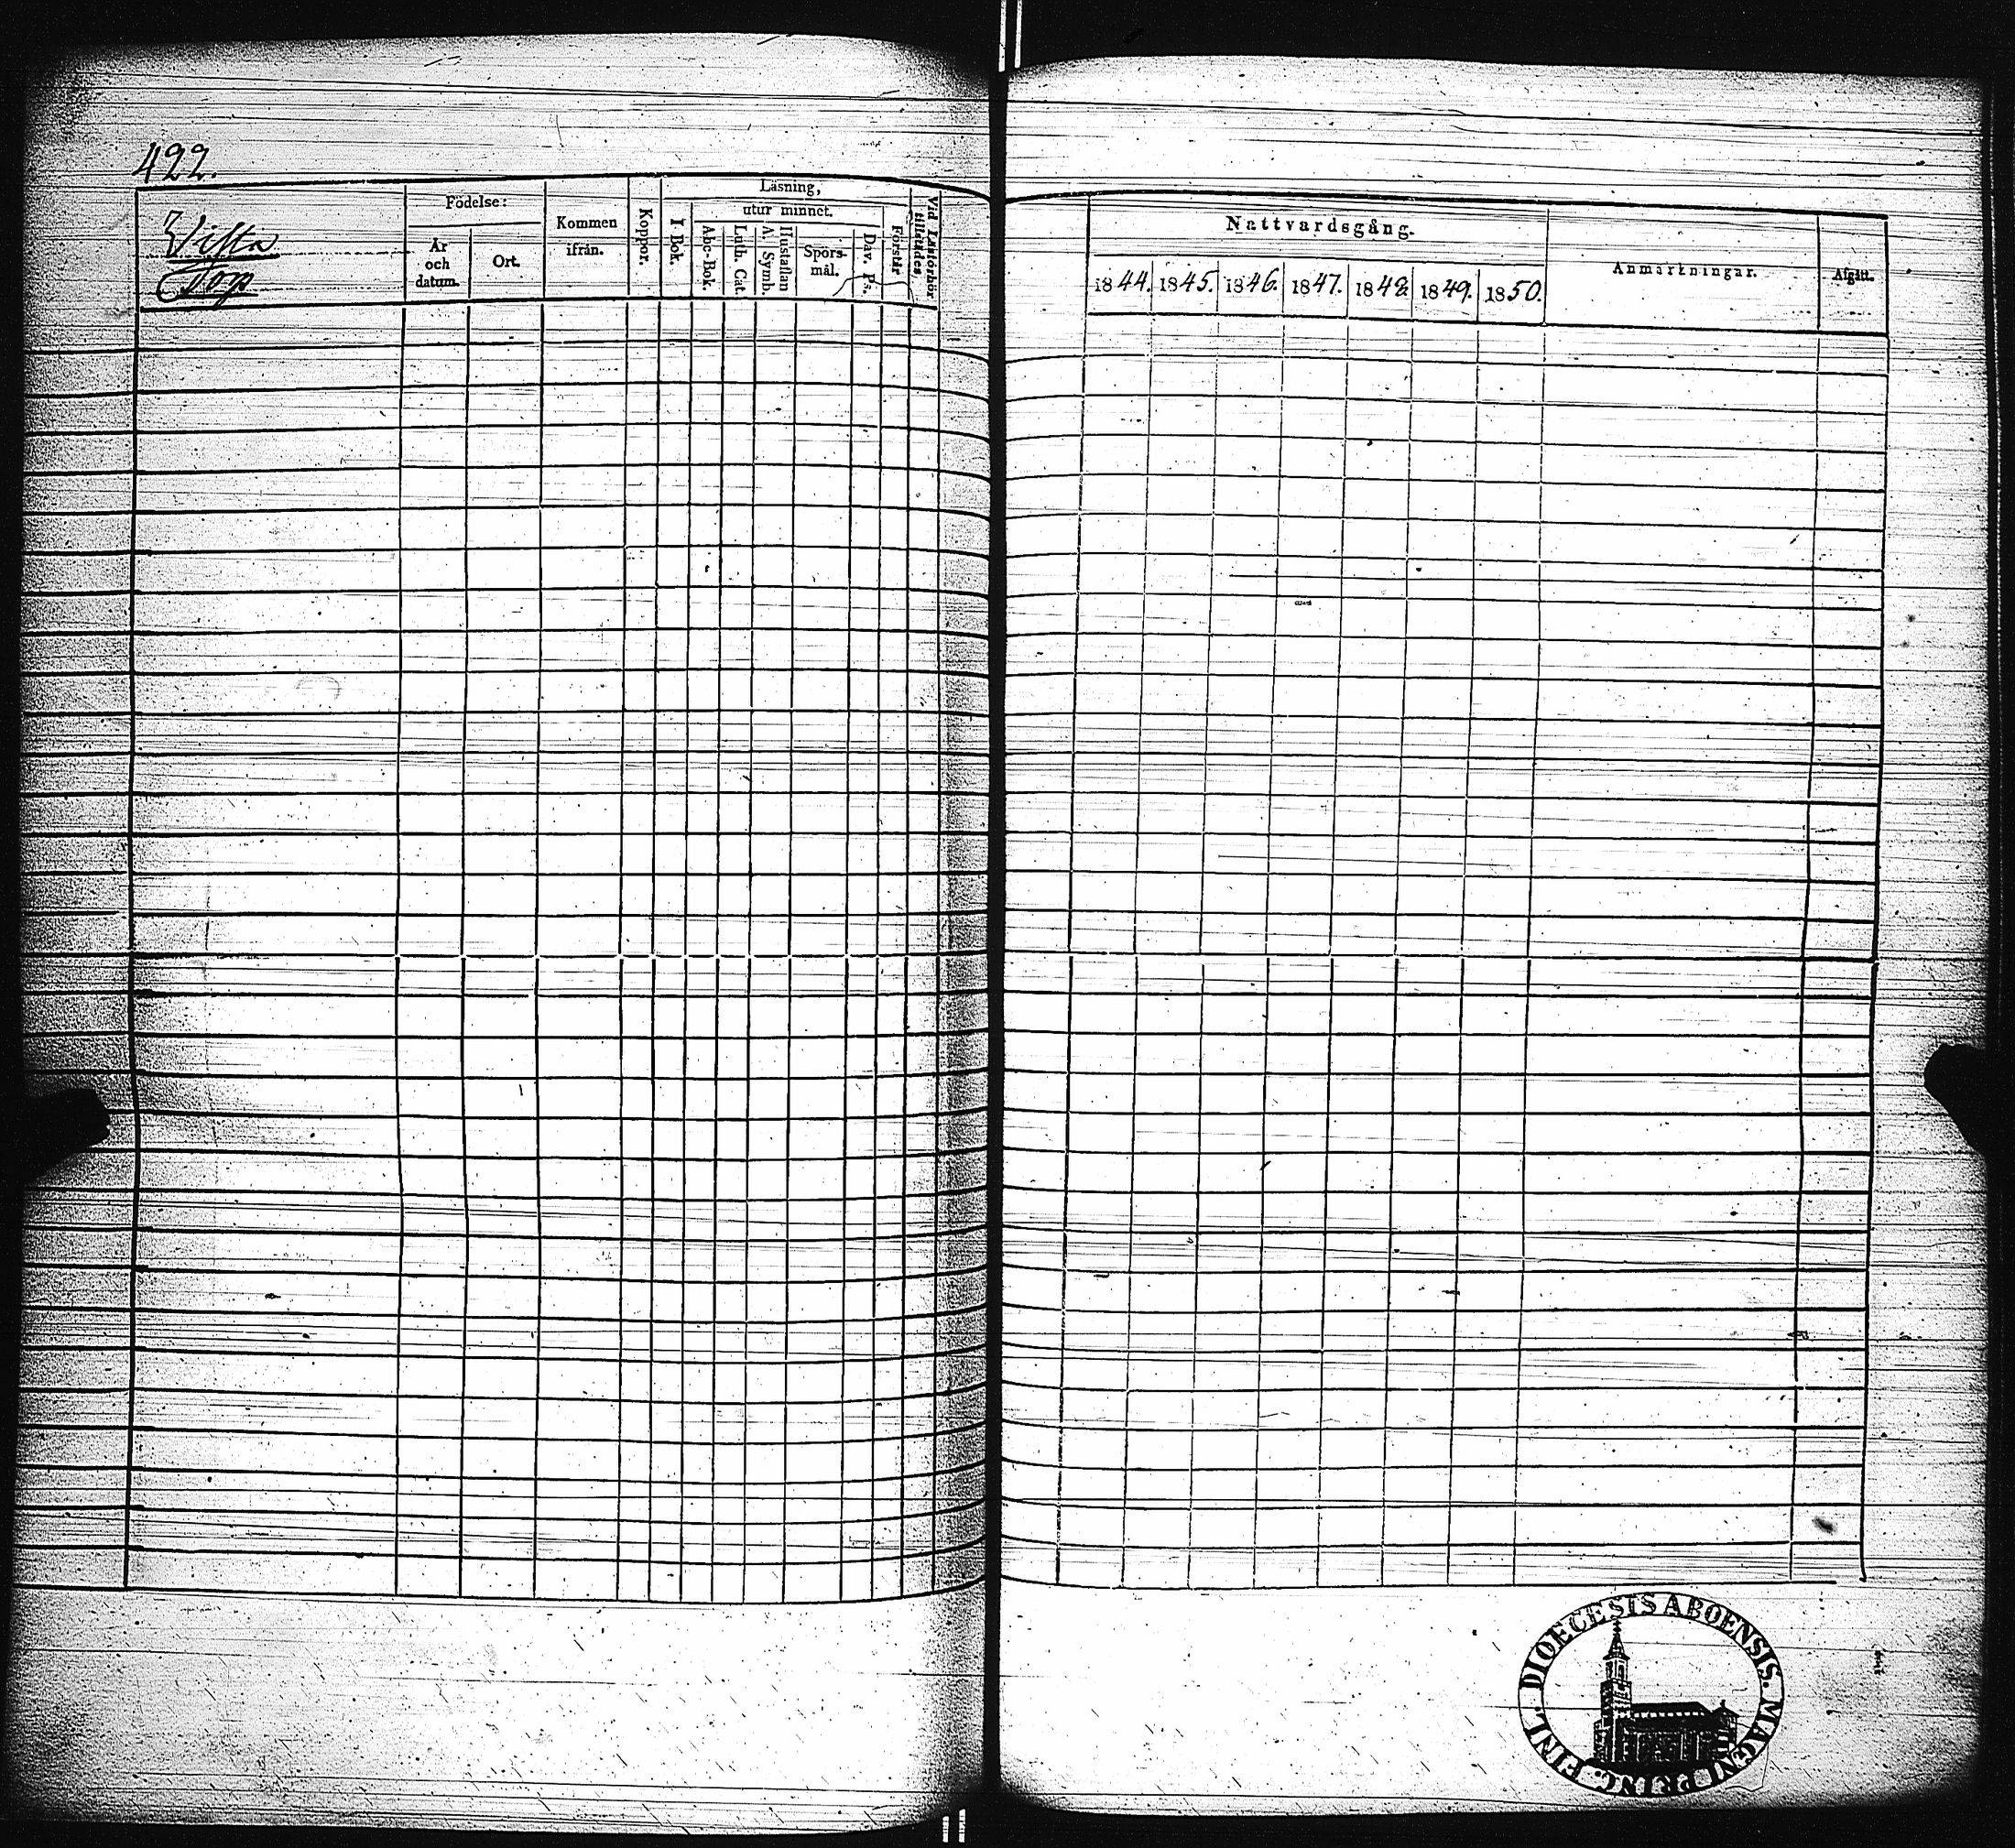 422.
Vista
Torp
Födelse:
År
och
datum.
Ort.
Kommen
ifrån.
Koppor.
Läsning,
utur minnet.
I Bok.
Abc-Bok.
Luth. Cat.
A. Symb.
Hustaflan
Spörs-
mål.
Dav. Ps.
Förstår
Vid Läsförhör
tillstädes.
Nattvardsgång.
1844. 1845. 1846. 1847. 1848. 1849. 1850.
Anmärkningar.
Afgått.
DIOECESIS ABOENSIS. MAGNI PRINC. FINL.